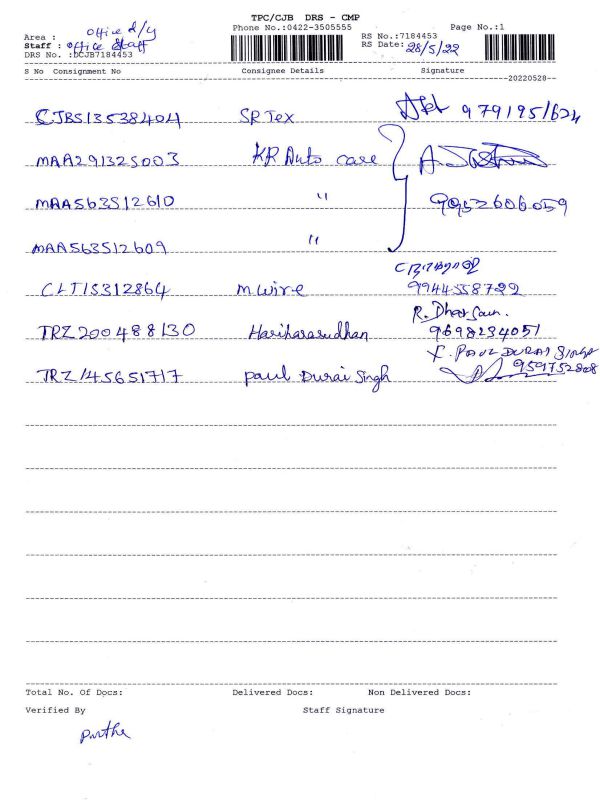 TPC/CJB DRS - CMP
Area : office d/y Phone No.:0422-3505555 RS No.:7184453 Page No.:1
Staff : office staff RS Date: 28/5/22
DRS No. :DCJB7184453
S No Consignment No Consignee Details Signature
20220528--
CJBS13538404 SR Tex 9791951624
MAA291325003 KR Auto care
MAA563512610 " 9952606059
MAA563512609 "
CLT15312864 M.wire 9944558722
R. Dharsan.
TRZ200488130 Hariharasudhan 9698234051
X. PAUL DURAI SINGH
TRZ145651717 paul Durai Singh 959752808
Total No. Of Docs: Delivered Docs: Non Delivered Docs:
Verified By Staff Signature
Partha